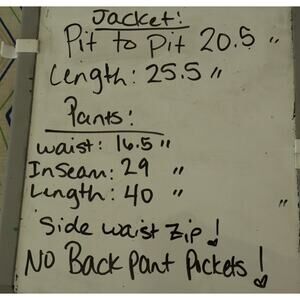 Jacket:
Pit to Pit 20.5"
Length: 25.5"
Pants:
waist: 16.5"
InSeam: 29 "
Length: 40 "
Side waist Zip!
No Back pant Pockets!